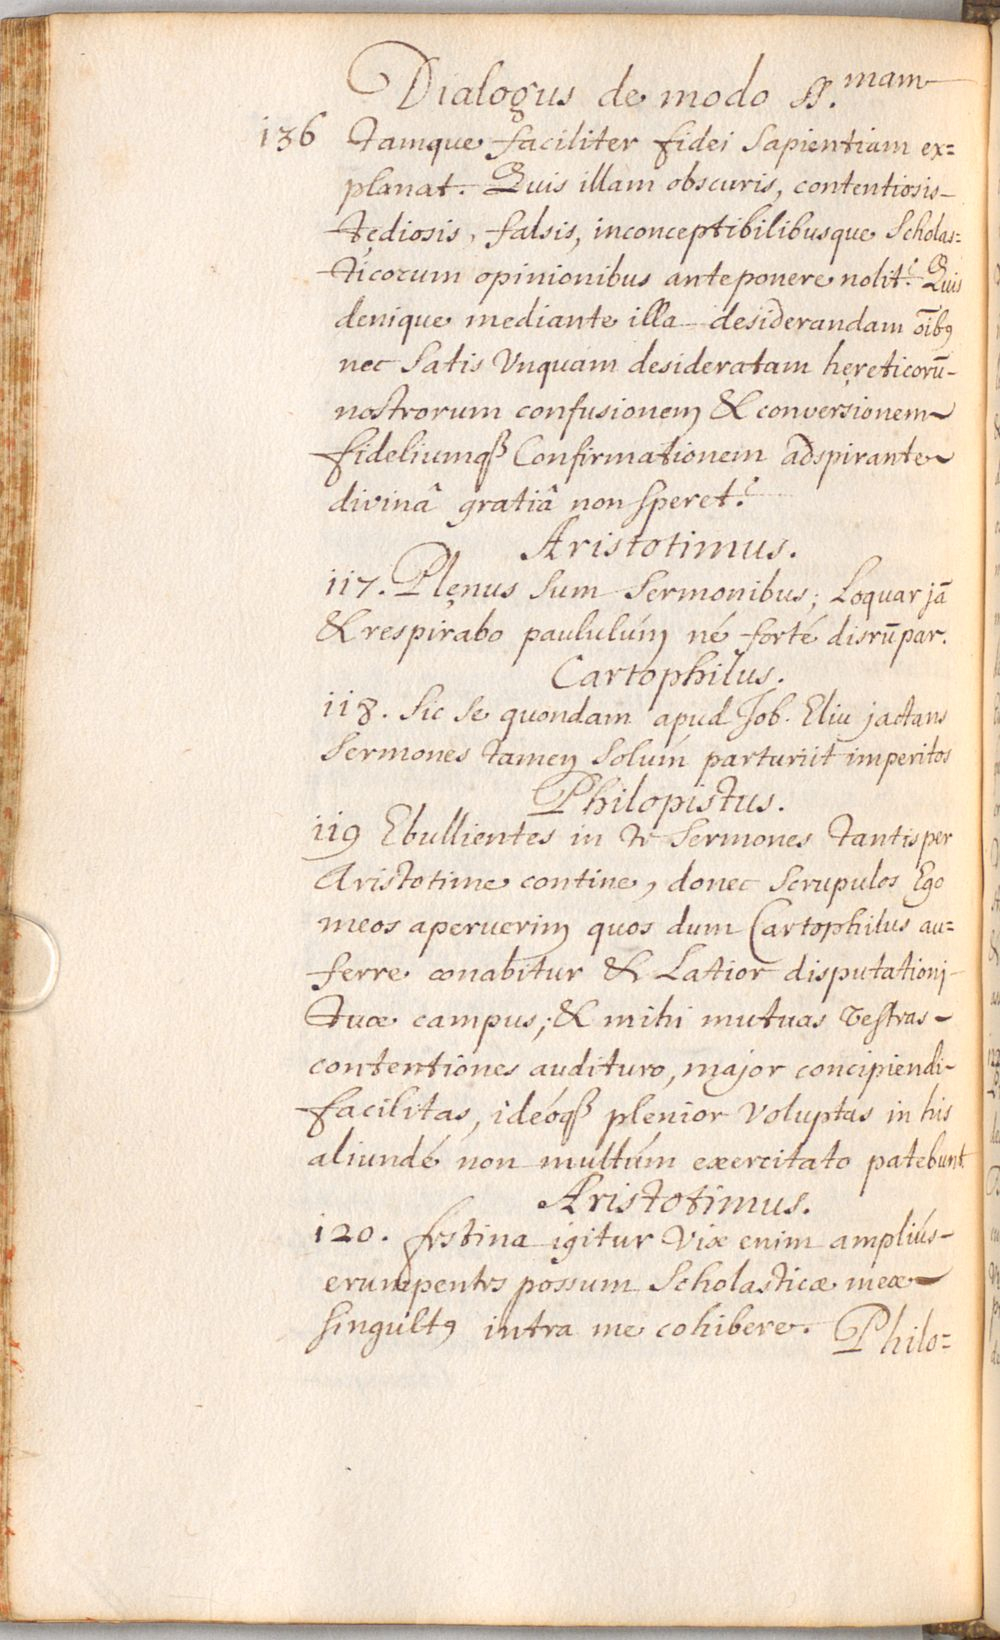 Dialogus de modo SS.mam
136 tamque faciliter fidei Sapientiam ex=
planat. Quis illam obscuris, contentiosis
tędiosis, falsis, inconceptibilibusque Scholas=
ticorum opinionibus anteponere nolit? Quis
denique mediante illa desiderandam oībꝰ
nec Satis Vnquam desideratam hęreticorū
nostrorum confusionem & conversionem
fideliumqß Confirmationem adspirante
divinâ gratiâ non Speret?
Aristotimus.
117. Plęnus Sum Sermonibus; Loquar jā
& respirabo paululúm né forté disrūpar.
Cartophilus.
118. Sic Se quondam apud Job. Eliu jactans
Sermones tamen Solúm parturiit imperitos
Philopistus.
119 Ebullientes in te Sermones tantisper
Aristotime contine, donec Scrupulos Ego
meos aperuerim quos dum Cartophilus au=
ferre conabitur & Latior disputationi
tuæ campus; & mihi mutuas vestras
contentiones audituro, major concipiendi
facilitas, ideóqß plenior Voluptas in his
aliundé non multúm exercitato patebunt.
Aristotimus.
120. festina igitur Vix enim ampliús
erumpentes possum Scholasticæ meæ
Singultꝰ intra me cohibere. Philo=